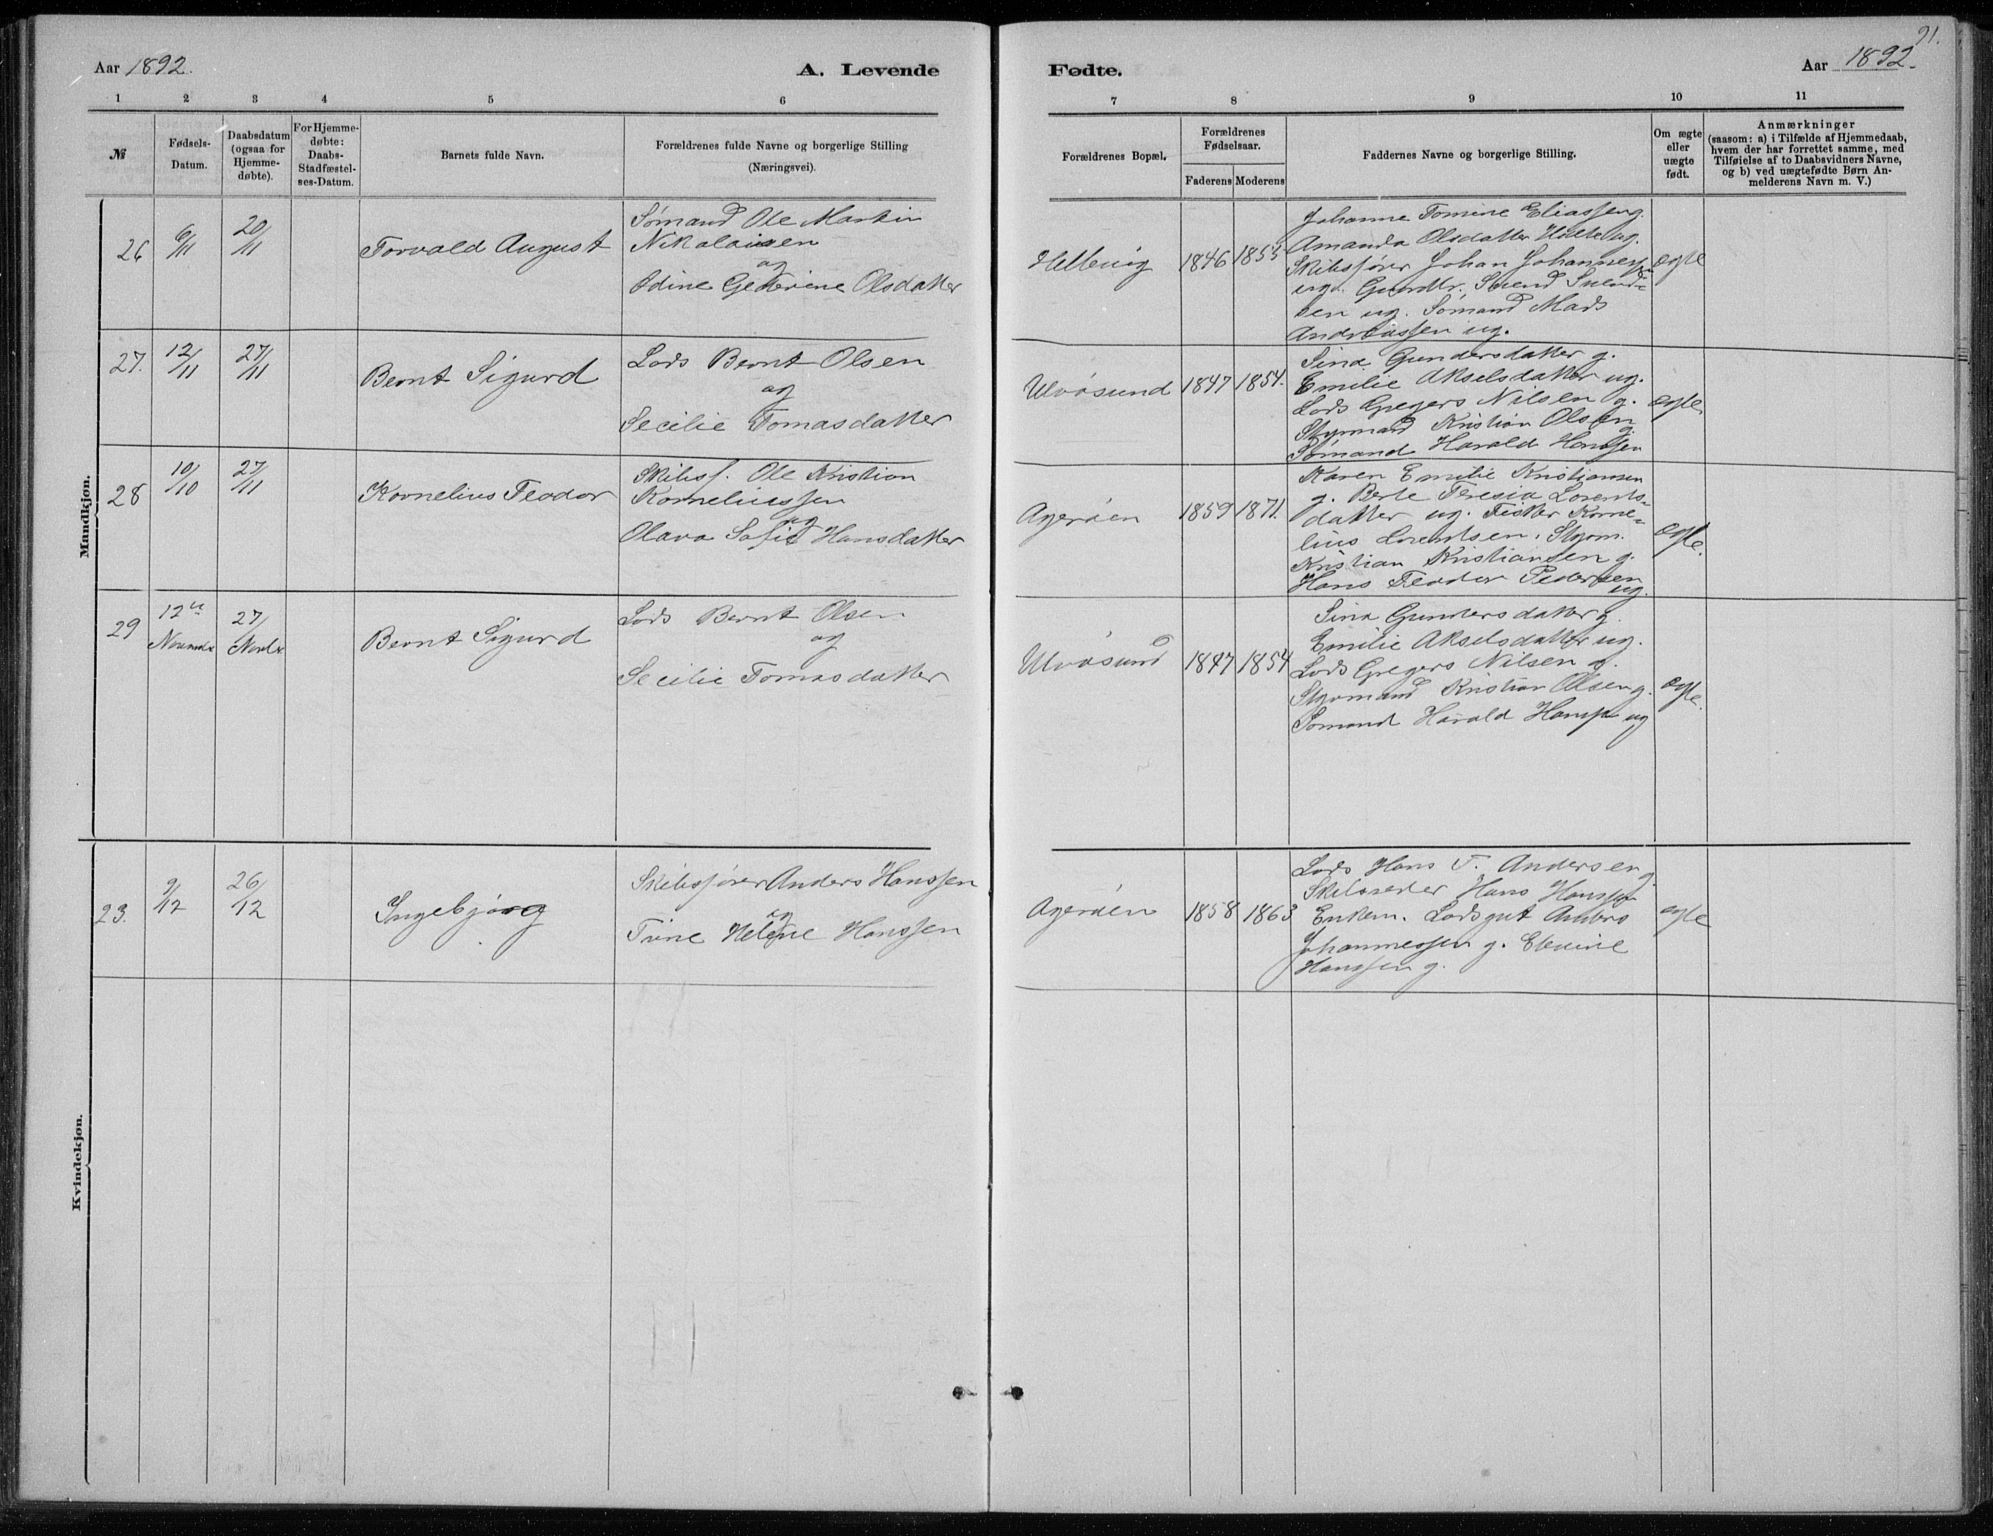 91.
Aar 1892.
A. Levende Fødte.
Aar 1892.
1 2 3 4 5 6 7 8 9 10 11
№
Fødsels-
Datum.
Daabsdatum
(ogsaa for
Hjemme-
døbte).
For Hjemme-
døbte:
Daabs-
Stadfæstel-
ses-Datum.
Barnets fulde Navn.
Forældrenes fulde Navne og borgerlige Stilling
(Næringsvei).
Forældrenes Bopæl.
Forældrenes
Fødselsaar.
Faderens Moderens
Faddernes Navne og borgerlige Stilling.
Om ægte
eller
uægte
født.
Anmærkninger
(saasom: a) i Tilfælde af Hjemmedaab,
hvem der har forrettet samme, med
Tilføielse af to Daabsvidners Navne,
og b) ved uægtefødte Børn An-
melderens Navn m. V.)
Mandkjøn.
26
6/11
20/11
Torvald August
Sømand Ole Martin
Nikolaisen
og
Odine Olsdatter
1846
Johanne Tomine Eliassen g.
Amanda Olsdatter ug.
Skibsfører Johan
ug. Svend
sen ug. Sømand Mads
Andreassen ug.
ægte
27.
12/11
27/11
Bernt Sigurd
Lods Bernt Olsen
og
Secilie Tomasdatter
Ulvøsund
1847
1854.
Sina Gundersdatter g.
Emilie Akselsdatter ug.
Lods Gregers Nilsen g.
Styrmand Kristian Olsen
g.
Sømand Harald Hanssen
ægte
28
10/10
27/11
Kornelius Teodor
Skibsf. Ole Kristian
Korneliussen
og
Olava Sofie Hansdatter
Agerøen
1859
1871.
Karen Emilie Kristiansen
g. Berte Teresia Lorents-
datter ug. Fisker Korne-
lius Lorentsen, Styrm.
Kristian Kristiansen g.
Hans Teodor Pedersen
ug.
ægte.
29
12te
27/
Bernt Sigurd
Lods Bernt Olsen
og
Secilie Tomasdatter
Ulvøsund
1847
1854
Sina Gundersdatter g.
Emilie Akselsdatter ug.
Lods Gregers Nilsen g.
Styrmand Kristian Olsen g.
Sømand Harald ug
ægte.
Kvindekjøn.
23.
9/12
26/12
Ingebjørg
Skibsfører Anders Hanssen
og
Trine Helene Hanssen
Agerøen
1858
1863
Lods Hans T. Andersen
g.
Skibsreder Hans
Enkem. Lodsgut
Johannessen g.
Hanssen g.
ægte